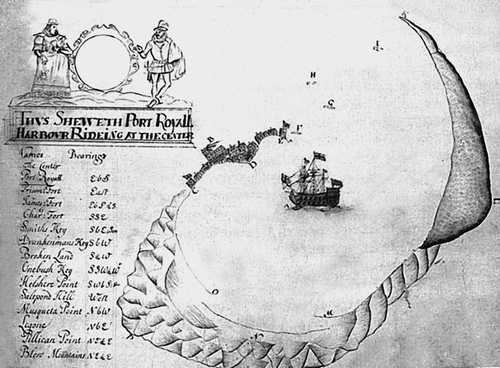 Thus Sheweth Port Royall
Harbour Rideing at the Center
Names Bearings
The Center
Port Royall E b S
Prison Fort East
James Fort
Charl: Fort S S E
Smiths Key
Drunkenmans Key S b W
Broken Land S & W
Onebush Key
Helshire Point
Saltpond Hill
Musqueta Point N b W
Ligone N b E
Pillican Point
Blew Mountains
I
H
G
F
O
N
M
L